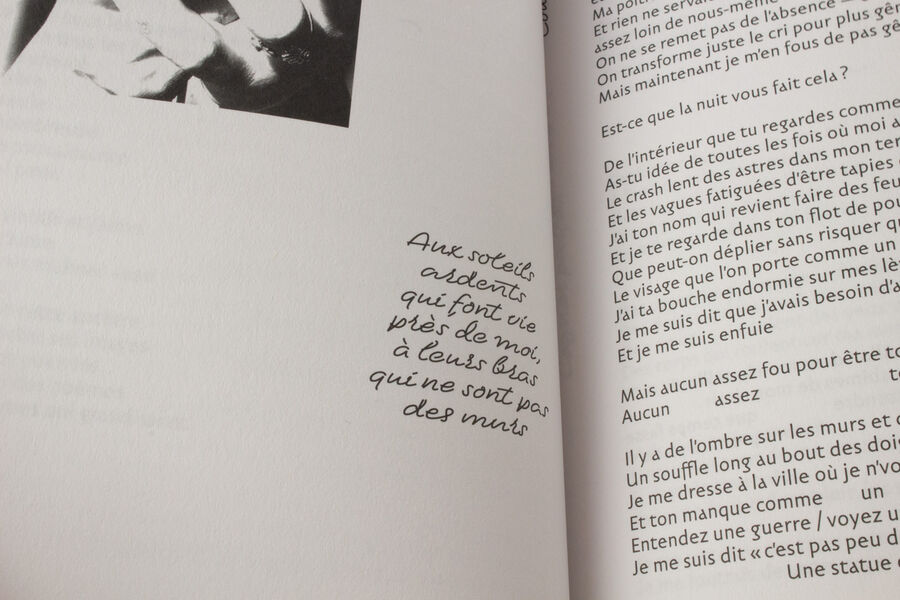 Aux soleils
ardents
qui font vie
près de moi,
à leurs bras
qui ne sont pas
des murs
Et rien ne servai
assez loin de nous-mêm
On ne se remet pas de l'absence
On transforme juste le cri pour plus
Mais maintenant je m'en fous de pas
Est-ce que la nuit vous fait cela ?
De l'intérieur que tu regardes comme
As-tu idée de toutes les fois où moi
Le crash lent des astres dans mon
Et les vagues fatiguées d'être tapies
J'ai ton nom qui revient faire des
Et je te regarde dans ton flot de
Que peut-on déplier sans risquer
Le visage que l'on porte comme un
J'ai ta bouche endormie sur mes
Je me suis dit que j'avais besoin
Et je me suis enfuie
Mais aucun assez fou pour être
Aucun assez
Il y a de l'ombre sur les murs et
Un souffle long au bout des
Je me dresse à la ville où je
Et ton manque comme un
Entendez une guerre / voyez
Je me suis dit « c'est pas peu
Une statue